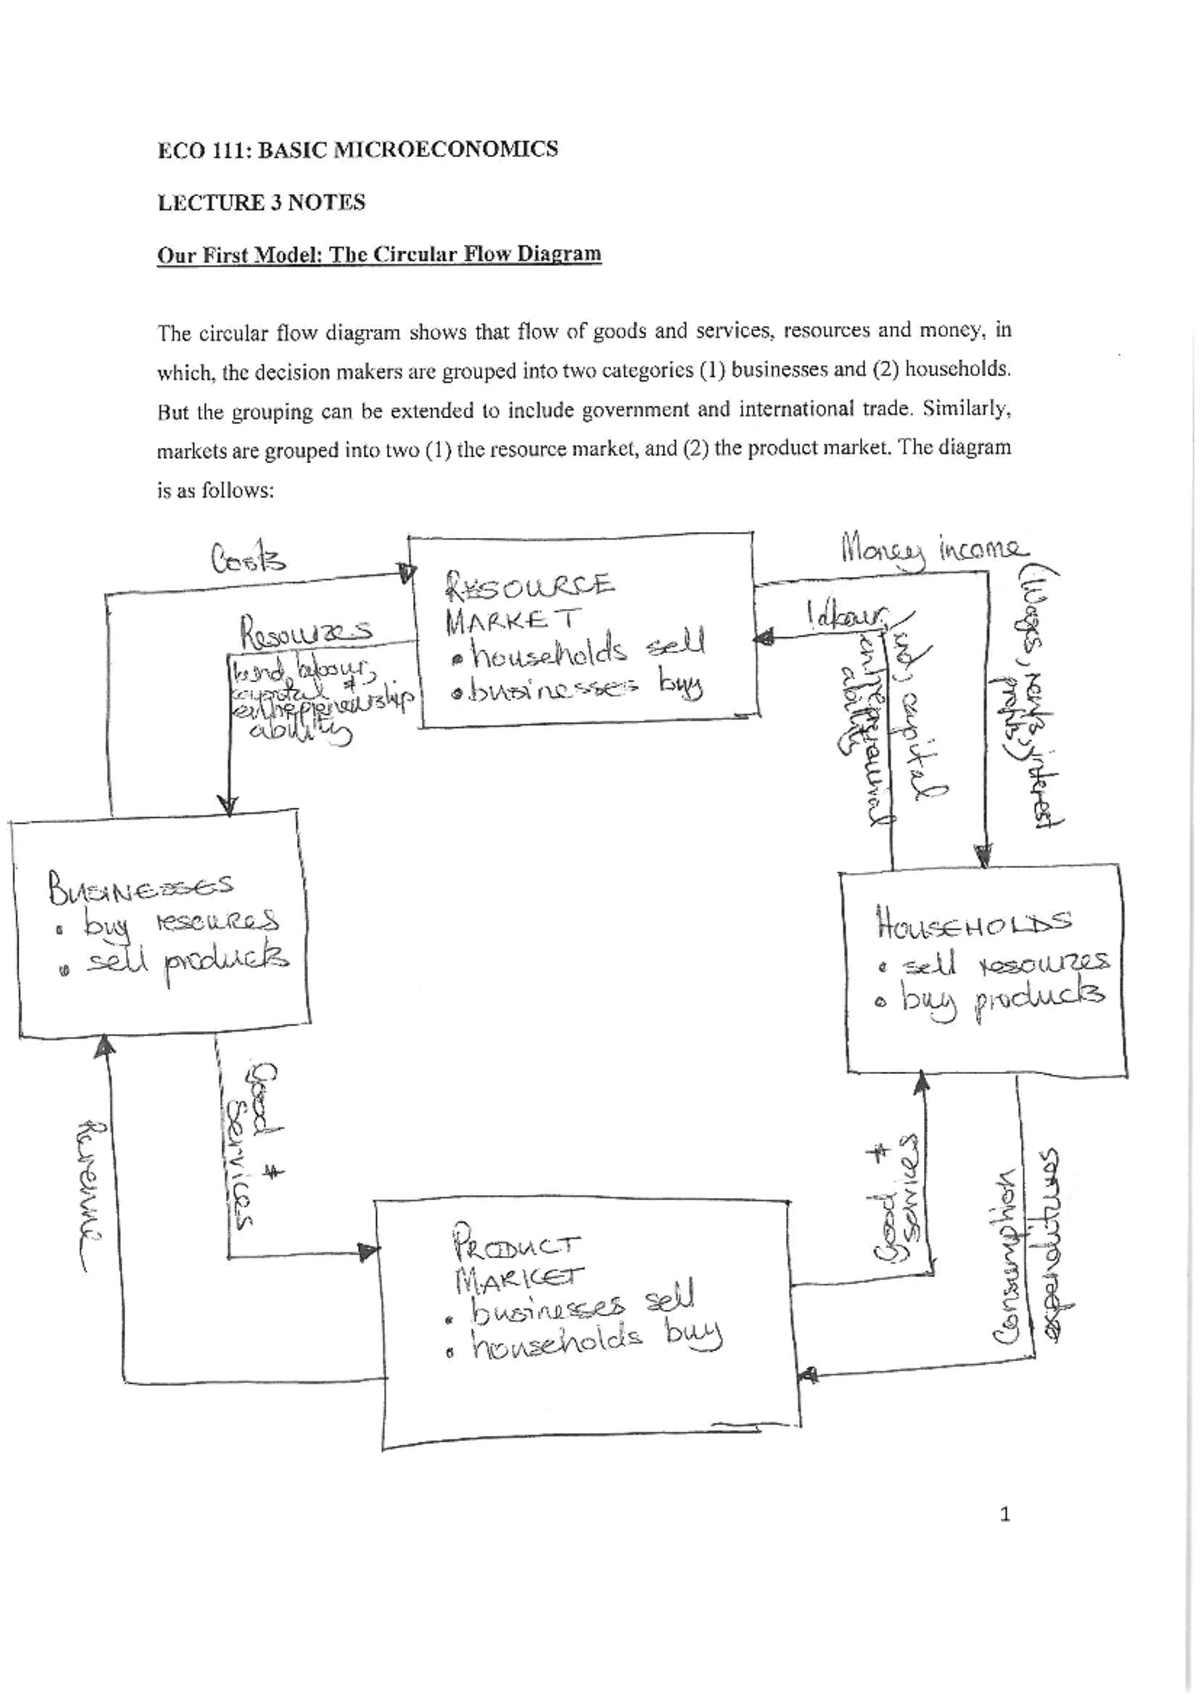 ECO 111: BASIC MICROECONOMICS
LECTURE 3 NOTES
Our First Model: The Circular Flow Diagram
The circular flow diagram shows that flow of goods and services, resources and money, in
which, the decision makers are grouped into two categories (1) businesses and (2) households.
But the grouping can be extended to include government and international trade. Similarly,
markets are grouped into two (1) the resource market, and (2) the product market. The diagram
is as follows:
Costs
RESOURCE
MARKET
• households sell
• businesses buy
Money income
(Wages, rents, interest
profits)
Resources
land, labour,
capital &
entrepreneurship
ability
labour, land, capital
entrepreneurial
ability
BUSINESSES
• buy resources
• sell products
HOUSEHOLDS
• sell resources
• buy products
Revenue
Good &
Services
Good &
services
Consumption
expenditures
PRODUCT
MARKET
• businesses sell
• households buy
1